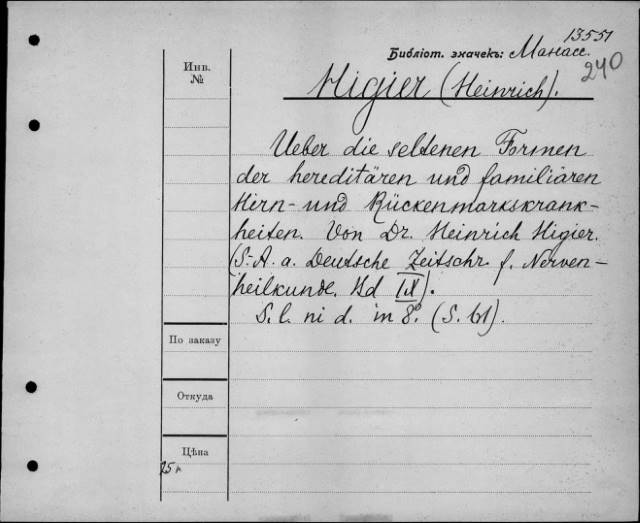 13551
Библіот. значекъ: Манасс.
240
Инв.
№
Higier (Heinrich).
Ueber die seltenen Formen
der hereditären und familiären
Hirn- und Rückenmarkskrank-
heiten. Von Dr. Heinrich Higier.
(S.-A. a. Deutsche Zeitschr. f. Nerven-
heilkunde. Bd IX).
S. l. ni d. in 8º. (S. 61).
По заказу
Откуда
Цѣна
25 к